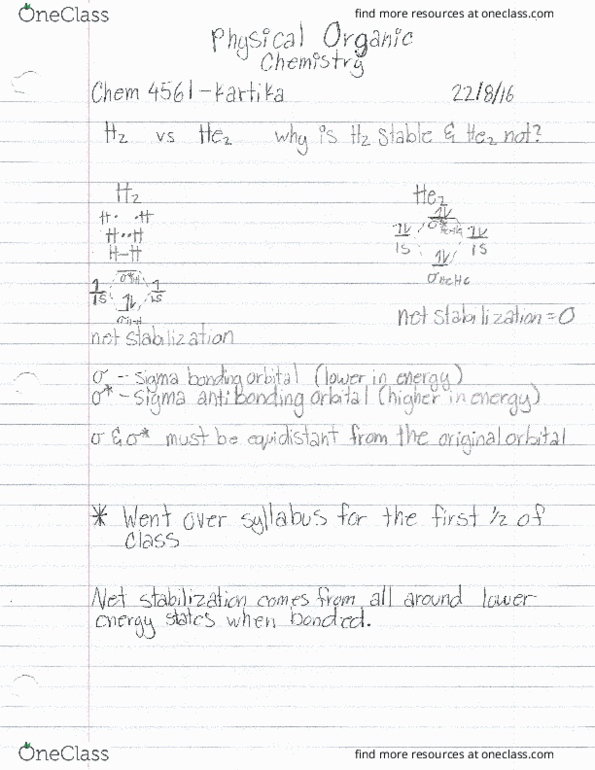 OneClass
find more resources at oneclass.com
Physical Organic
Chemistry
Chem 4561 - Kartika 22/8/16
H₂ vs He₂ why is H₂ stable & He₂ not?
H₂ He₂
H· ·H
H··H
H-H
1S 1S
σ* H-H
σ H-H
σ* HeHe
1S 1S
σ HeHe
net stabilization = 0
net stabilization
σ -- sigma bonding orbital (lower in energy)
σ* - sigma antibonding orbital (higher in energy)
σ & σ* must be equidistant from the original orbital
* Went over syllabus for the first 1/2 of
class
Net stabilization comes from all around lower
energy states when bonded.
OneClass
find more resources at oneclass.com